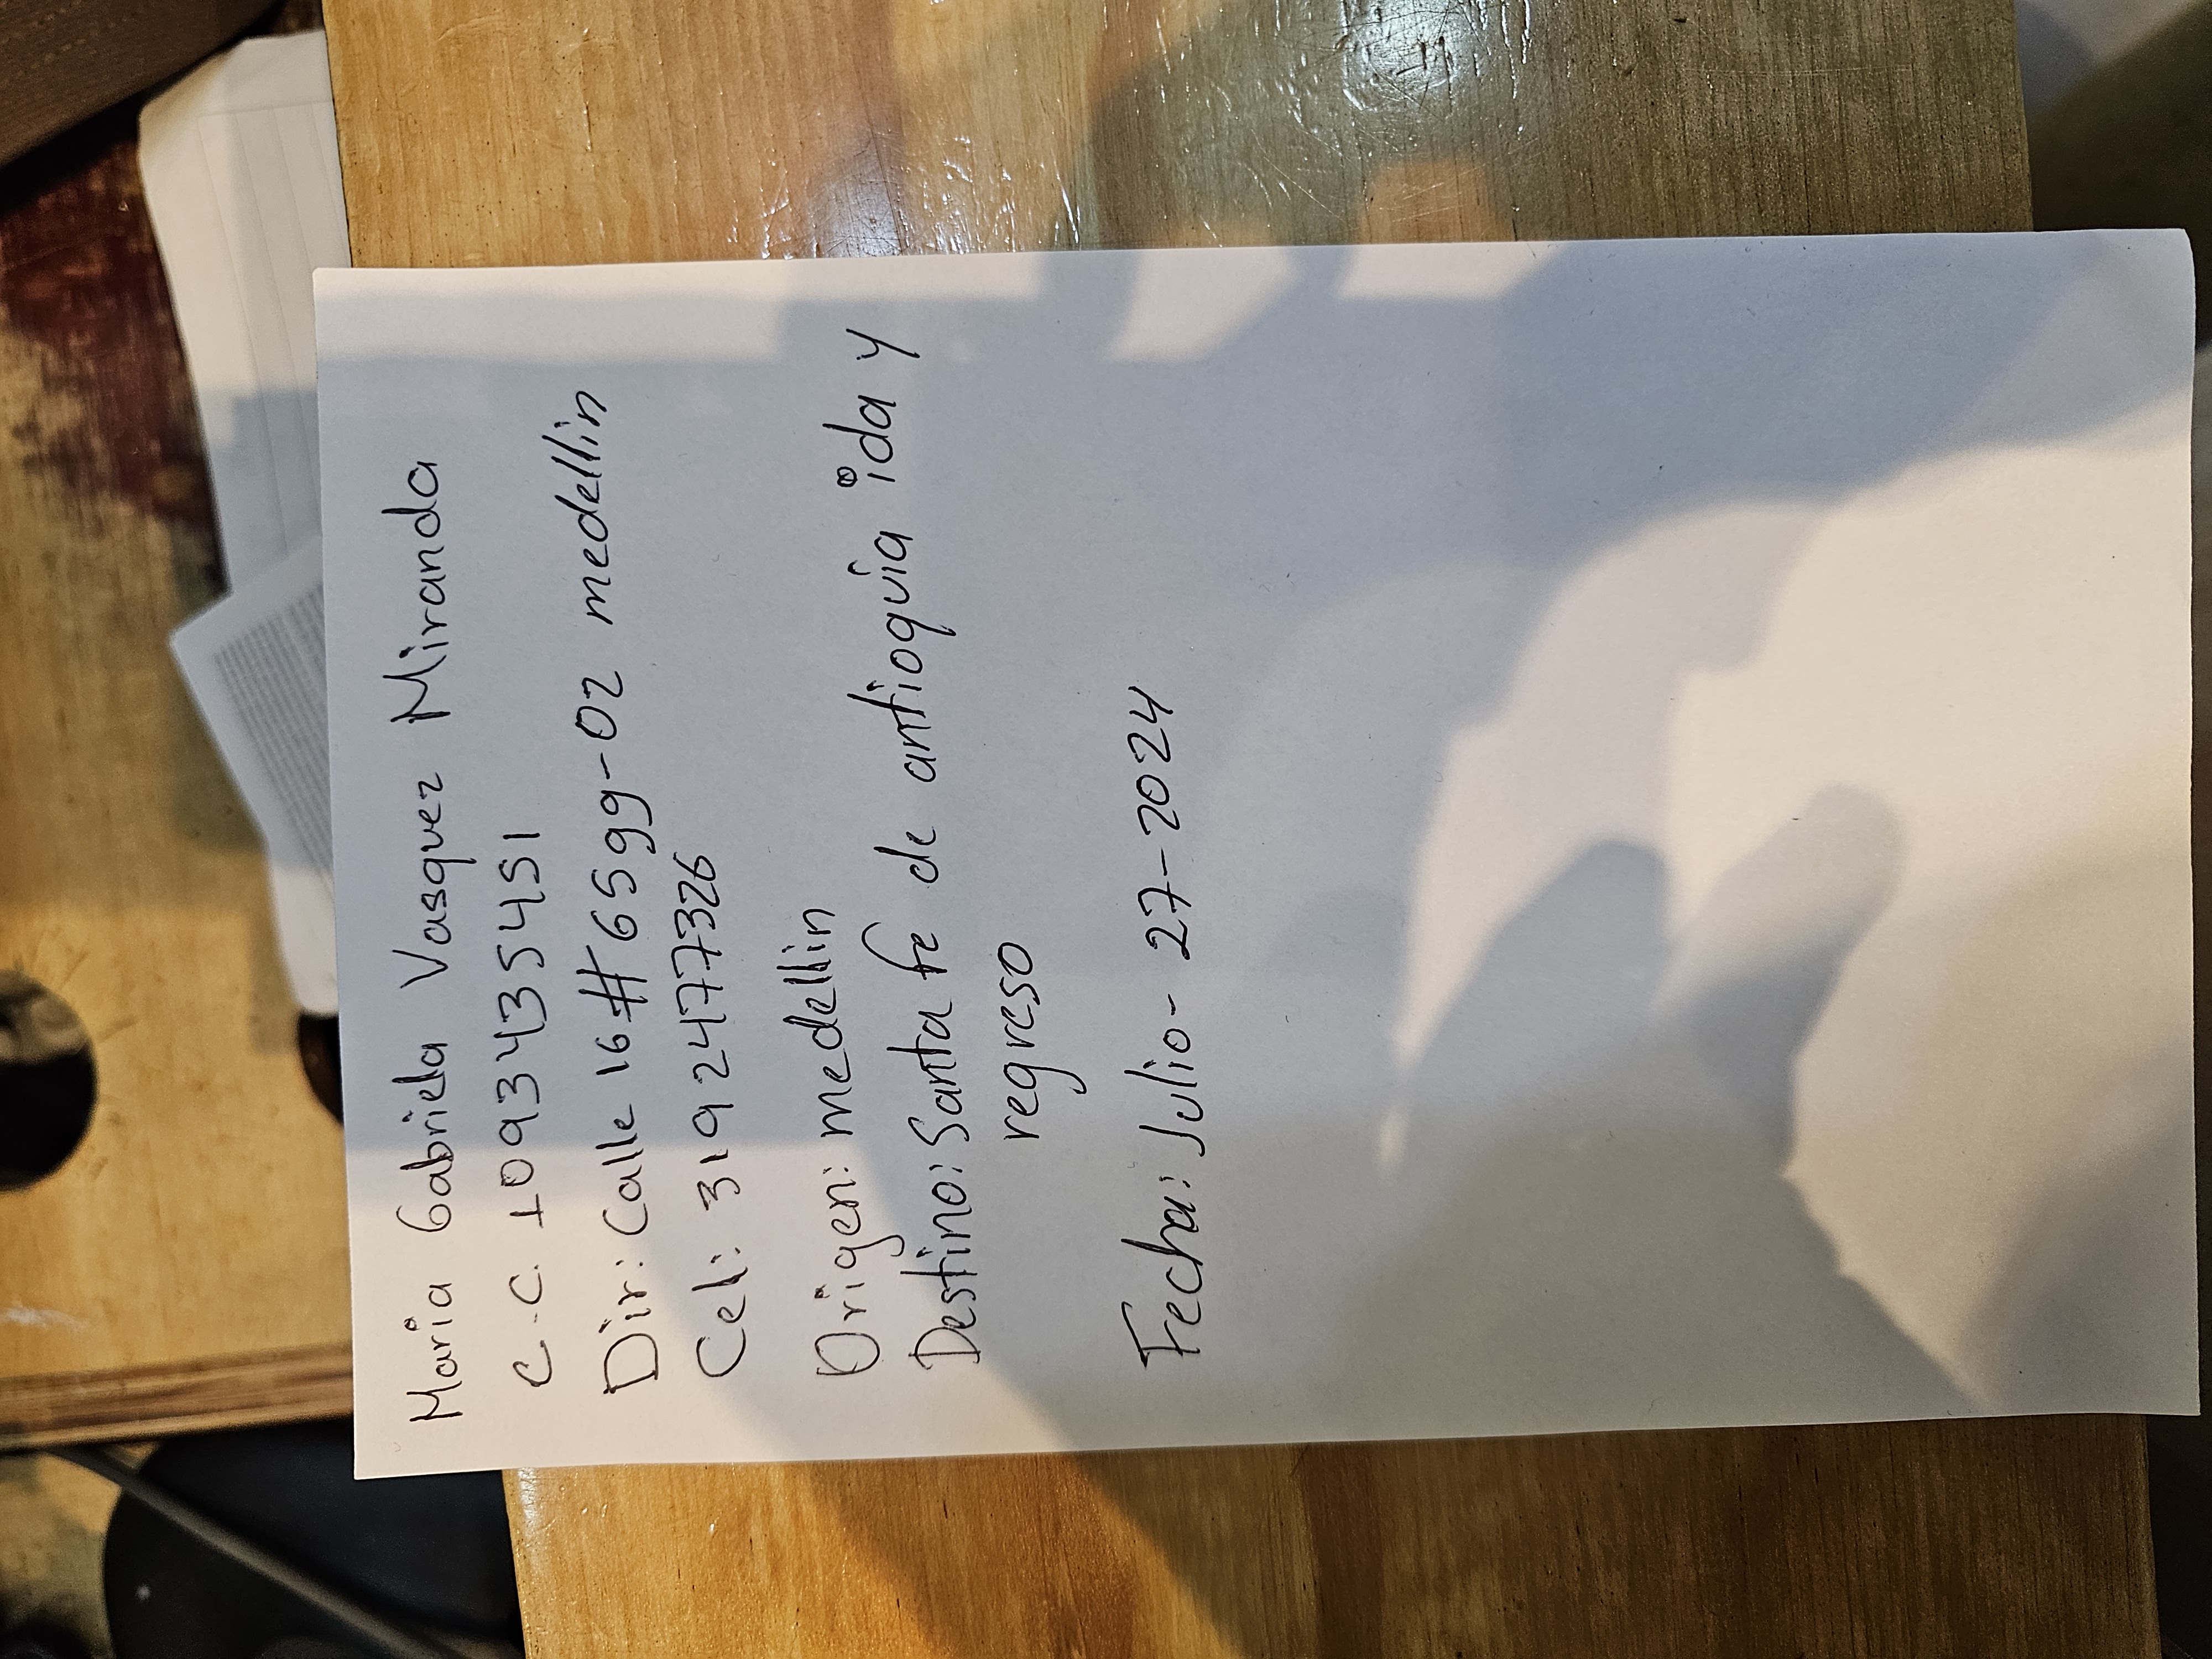 Maria Gabriela Vasquez Miranda
C.C. 1093435451
Dir: Calle 16 # 65gg-02 medellin
Cel: 3192477326
Origen: medellin
Destino: Santa fe de antioquia ida y
regreso
Fecha: Julio- 27-2024